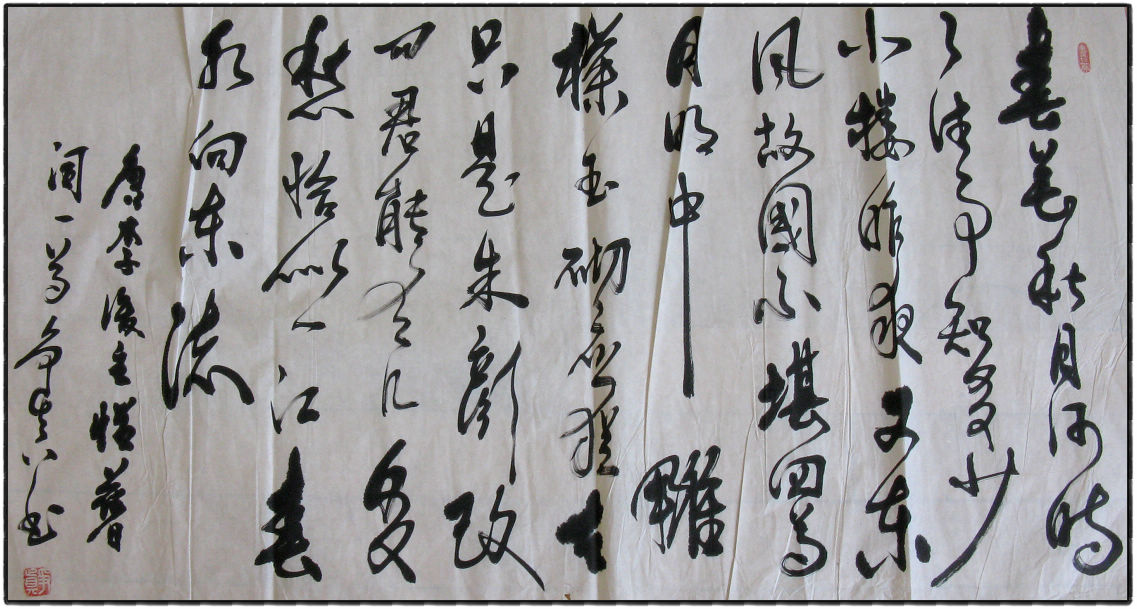 春花秋月何時
了往事知多少
小樓昨夜又東
風故國不堪回首
月明中雕
欄玉砌應猶在
只是朱顏改
問君能有几多
愁恰似一江春
水向東流
唐李後主惜
詞一首 書